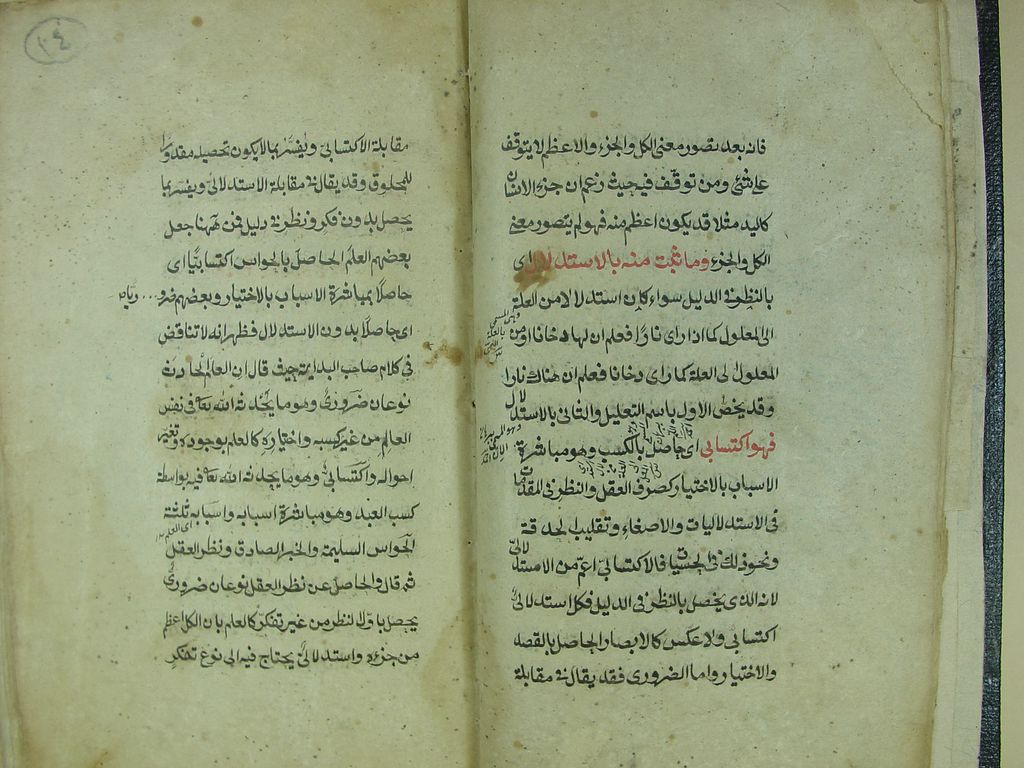 فانه بعد تصور معنى الكل والجزء والاعظم لا يتوقف
على شئ ومن توقف فيه حيث زعم ان جزء الانسان
كاليد مثلا قد يكون اعظم منه فهو لم يتصور معنى
الكل والجزء وما ثبت منه بالاستدلال اى
بالنظر فى الدليل سواء كان استدلالا من العلة
الى المعلول كما اذا راى نارا فعلم ان لها دخانا او من
المعلول الى العلة كما راى دخانا فعلم ان هناك نارا
وقد يخص الاول باسم التعليل والثانى بالاستدلال
فهو اكتسابى اى حاصل بالكسب وهو مباشرة
الاسباب بالاختيار كصرف العقل والنظر فى المقدمات
فى الاستدلاليات والاصغاء وتقليب الحدقة
ونحو ذلك فى الحسيات فالاكتسابى اعم من الاستدلالى
لانه الذى يحصل بالنظر فى الدليل فكل استدلالى
اكتسابى ولا عكس كالابصار الحاصل بالقصد
والاختيار واما الضرورى فقد يقال فى مقابلة
٢٤
مقابلة الاكتسابى ويفسر بما لا يكون تحصيله مقدورا
للمخلوق وقد يقال فى مقابلة الاستدلالى ويفسر بما
يحصل بدون فكر ونظر فى دليل فمن ههنا جعل
بعضهم العلم الحاصل بالحواس اكتسابيا اى
حاصلا بمباشرة الاسباب بالاختيار وبعضهم ضروريا
اى حاصلا بدون الاستدلال فظهر انه لا تناقض
فى كلام صاحب البداية حيث قال ان العلم الحادث
نوعان ضرورى وهو ما يحدثه الله تعا فى نفس
العالم من غير كسبه واختياره كالعلم بوجوده وتغير
احواله واكتسابى وهو ما يحدثه الله تعا فيه بواسطة
كسب العبد وهو مباشرة اسبابه واسبابه ثلثة
الحواس السليمة والخبر الصادق ونظر العقل
ثم قال والحاصل عن نظر العقل نوعان ضرورى
يحصل باول النظر من غير تفكر كالعلم بان الكل اعظم
من جزءه واستدلالى يحتاج فيه الى نوع تفكر